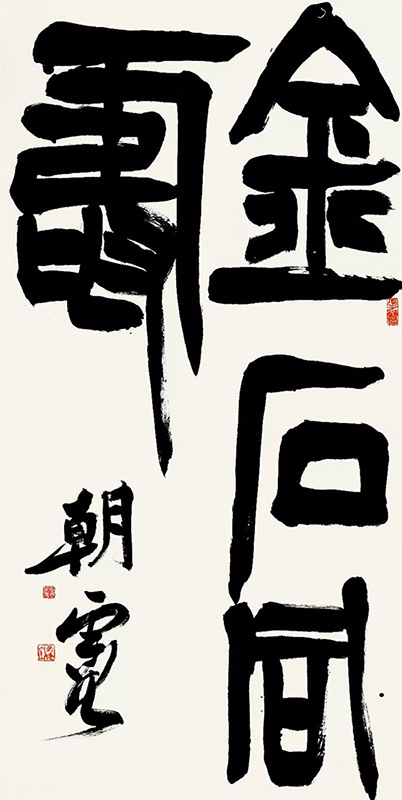 金石同
壽
朝霞